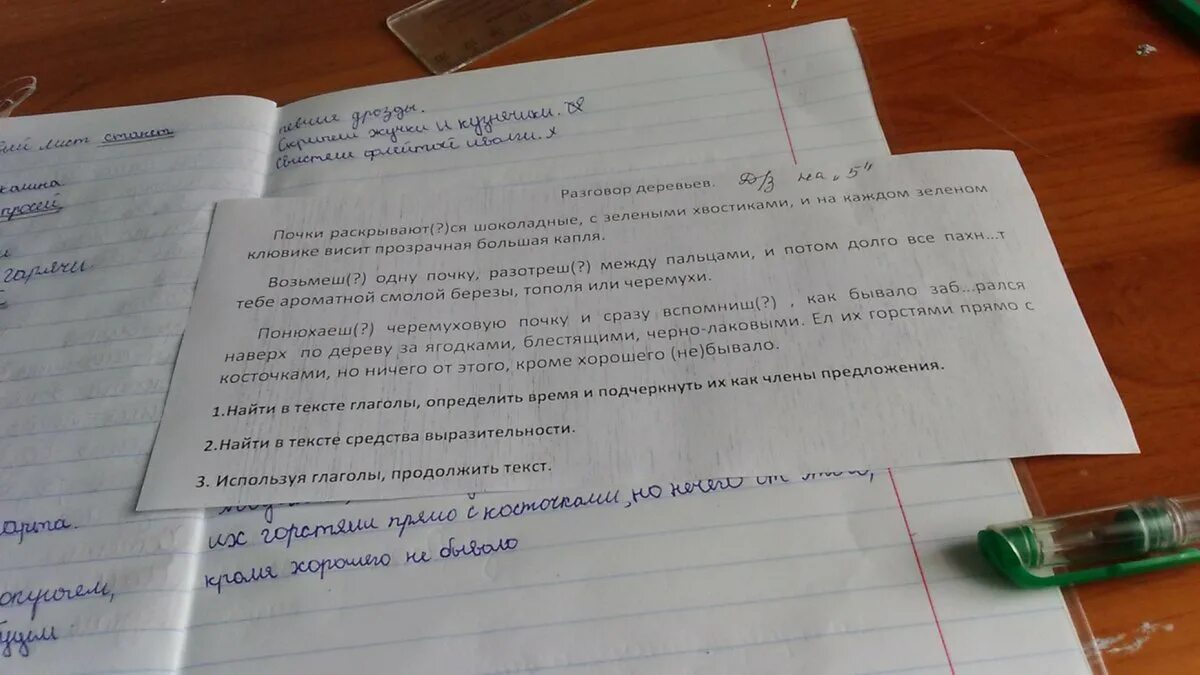 вий лист станет
калина
просей
гарячи.
певшие дрозды.
Скрипели жучки и кузнечики.
Свистели флейтой иволги.
Разговор деревьев. Д/з на „5"
Почки раскрывают(?)ся шоколадные, с зелеными хвостиками, и на каждом зеленом
клювике висит прозрачная большая капля.
Возьмеш(?) одну почку, разотреш(?) между пальцами, и потом долго все пахн...т
тебе ароматной смолой березы, тополя или черемухи.
Понюхаеш(?) черемуховую почку и сразу вспомниш(?) , как бывало заб...рался
наверх по дереву за ягодками, блестящими, черно-лаковыми. Ел их горстями прямо с
косточками, но ничего от этого, кроме хорошего (не)бывало.
1.Найти в тексте глаголы, определить время и подчеркнуть их как члены предложения.
2.Найти в тексте средства выразительности.
3. Используя глаголы, продолжить текст.
их горстями прямо с косточками, но нечего от этого,
кромя хорошего не бывало
арта.